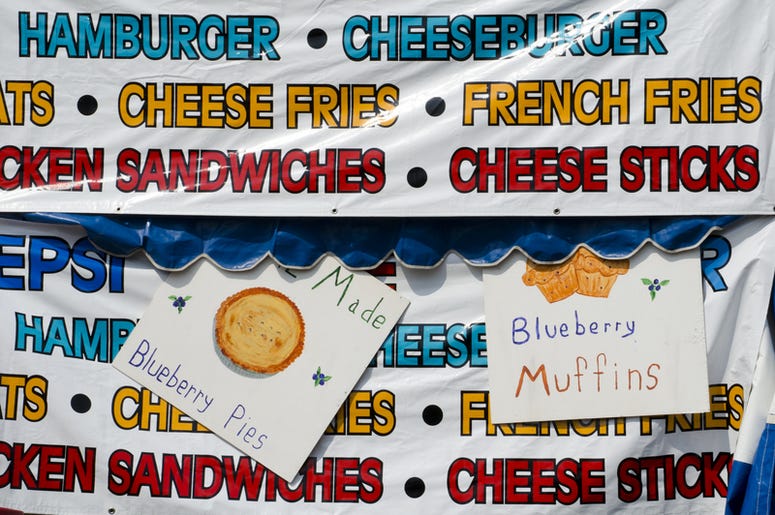 HAMBURGER • CHEESEBURGER
ATS • CHEESE FRIES • FRENCH FRIES
CKEN SANDWICHES • CHEESE STICKS
EPSI
Made
Blueberry Pies
Blueberry
Muffins
HAMB HEESE
ATS • CHE IES • FRENCH FRIES
CKEN SANDWICHES • CHEESE STICKS